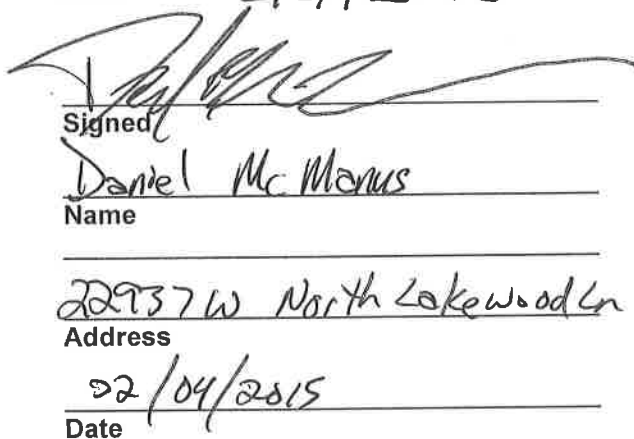 Signed
Daniel McManus
Name
22937 W North Lakewood Ln
Address
02/04/2015
Date